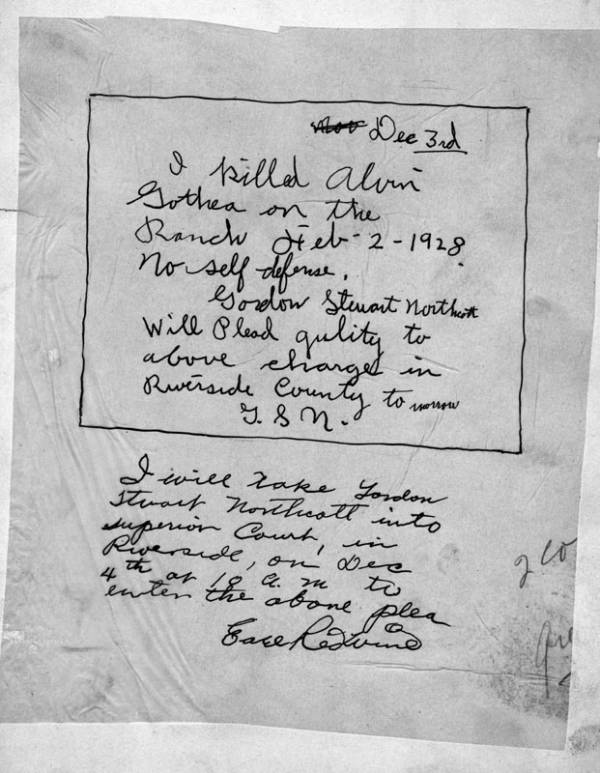 Nov Dec 3rd
I killed Alvin
Gothea on the
Ranch Feb-2-1928.
No self defense.
Gordon Stewart Northcott
Will Plead gulity to
above charges in
Riverside County tomorrow
G. S. N.
I will take Gordon
Stuart Northcott into
superior Court, in
Riverside, on Dec
4th at 10 a.m to
enter the above plea
Earl Redwine